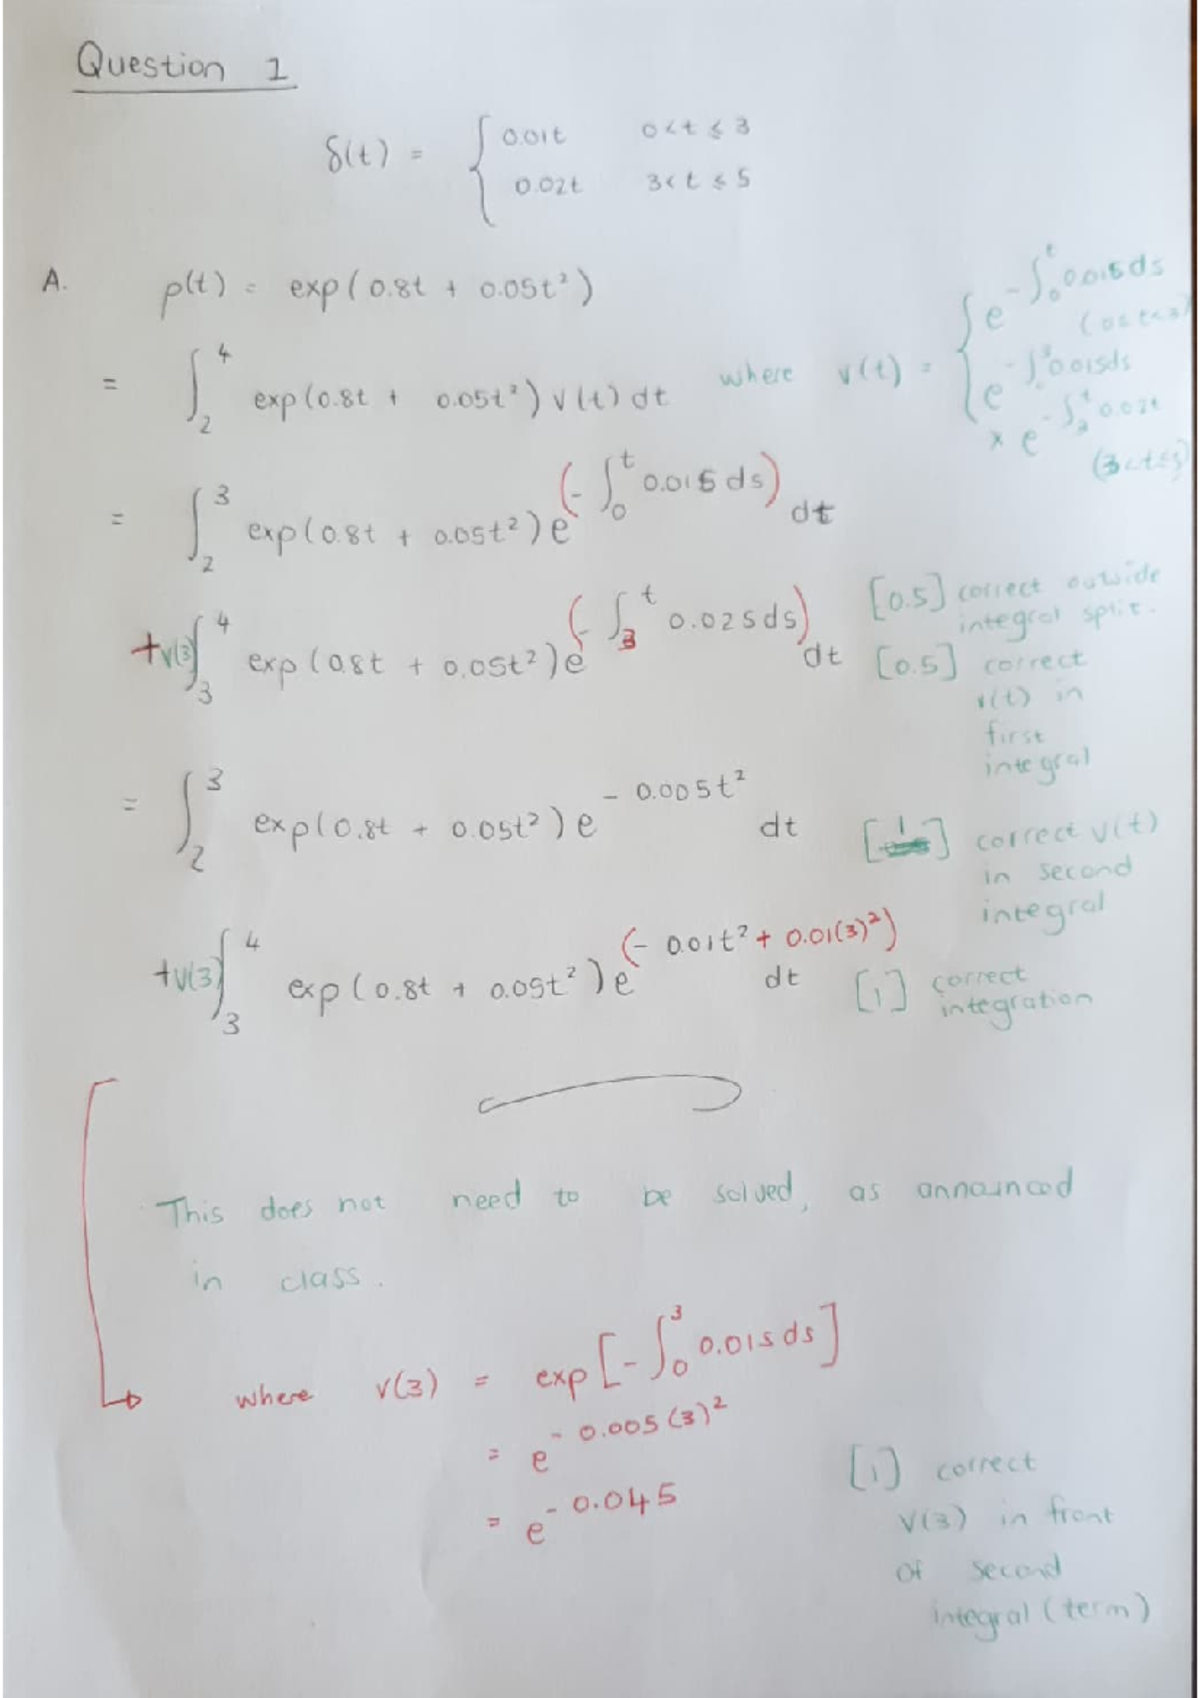 Question 1
δ(t) = { 0.01t 0<t≤3
0.02t 3<t≤5
A. ρ(t) = exp(0.8t + 0.05t²)
= ∫₂⁴ exp(0.8t + 0.05t²) v(t) dt where v(t) = { e^-∫₀ᵗ 0.01s ds
(0≤t≤3)
e^-∫₀³ 0.01s ds
× e^-∫₃ᵗ 0.02t
(3<t≤5)
= ∫₂³ exp(0.8t + 0.05t²) e^(-∫₀ᵗ 0.01s ds) dt
+v(3)∫₃⁴ exp(0.8t + 0.05t²) e^(-∫₃ᵗ 0.02s ds) dt
[0.5] correct outside
integral split.
[0.5] correct
v(t) in
first
integral
= ∫₂³ exp(0.8t + 0.05t²) e^-0.005t² dt
[1] correct v(t)
in second
integral
+v(3)∫₃⁴ exp(0.8t + 0.05t²) e^(-0.01t² + 0.01(3)²) dt
[1] correct
integration
This does not need to be solved, as announced
in class.
where v(3) = exp[-∫₀³ 0.01s ds]
= e^-0.005(3)²
= e^-0.045
[1] correct
v(3) in front
of second
integral (term)